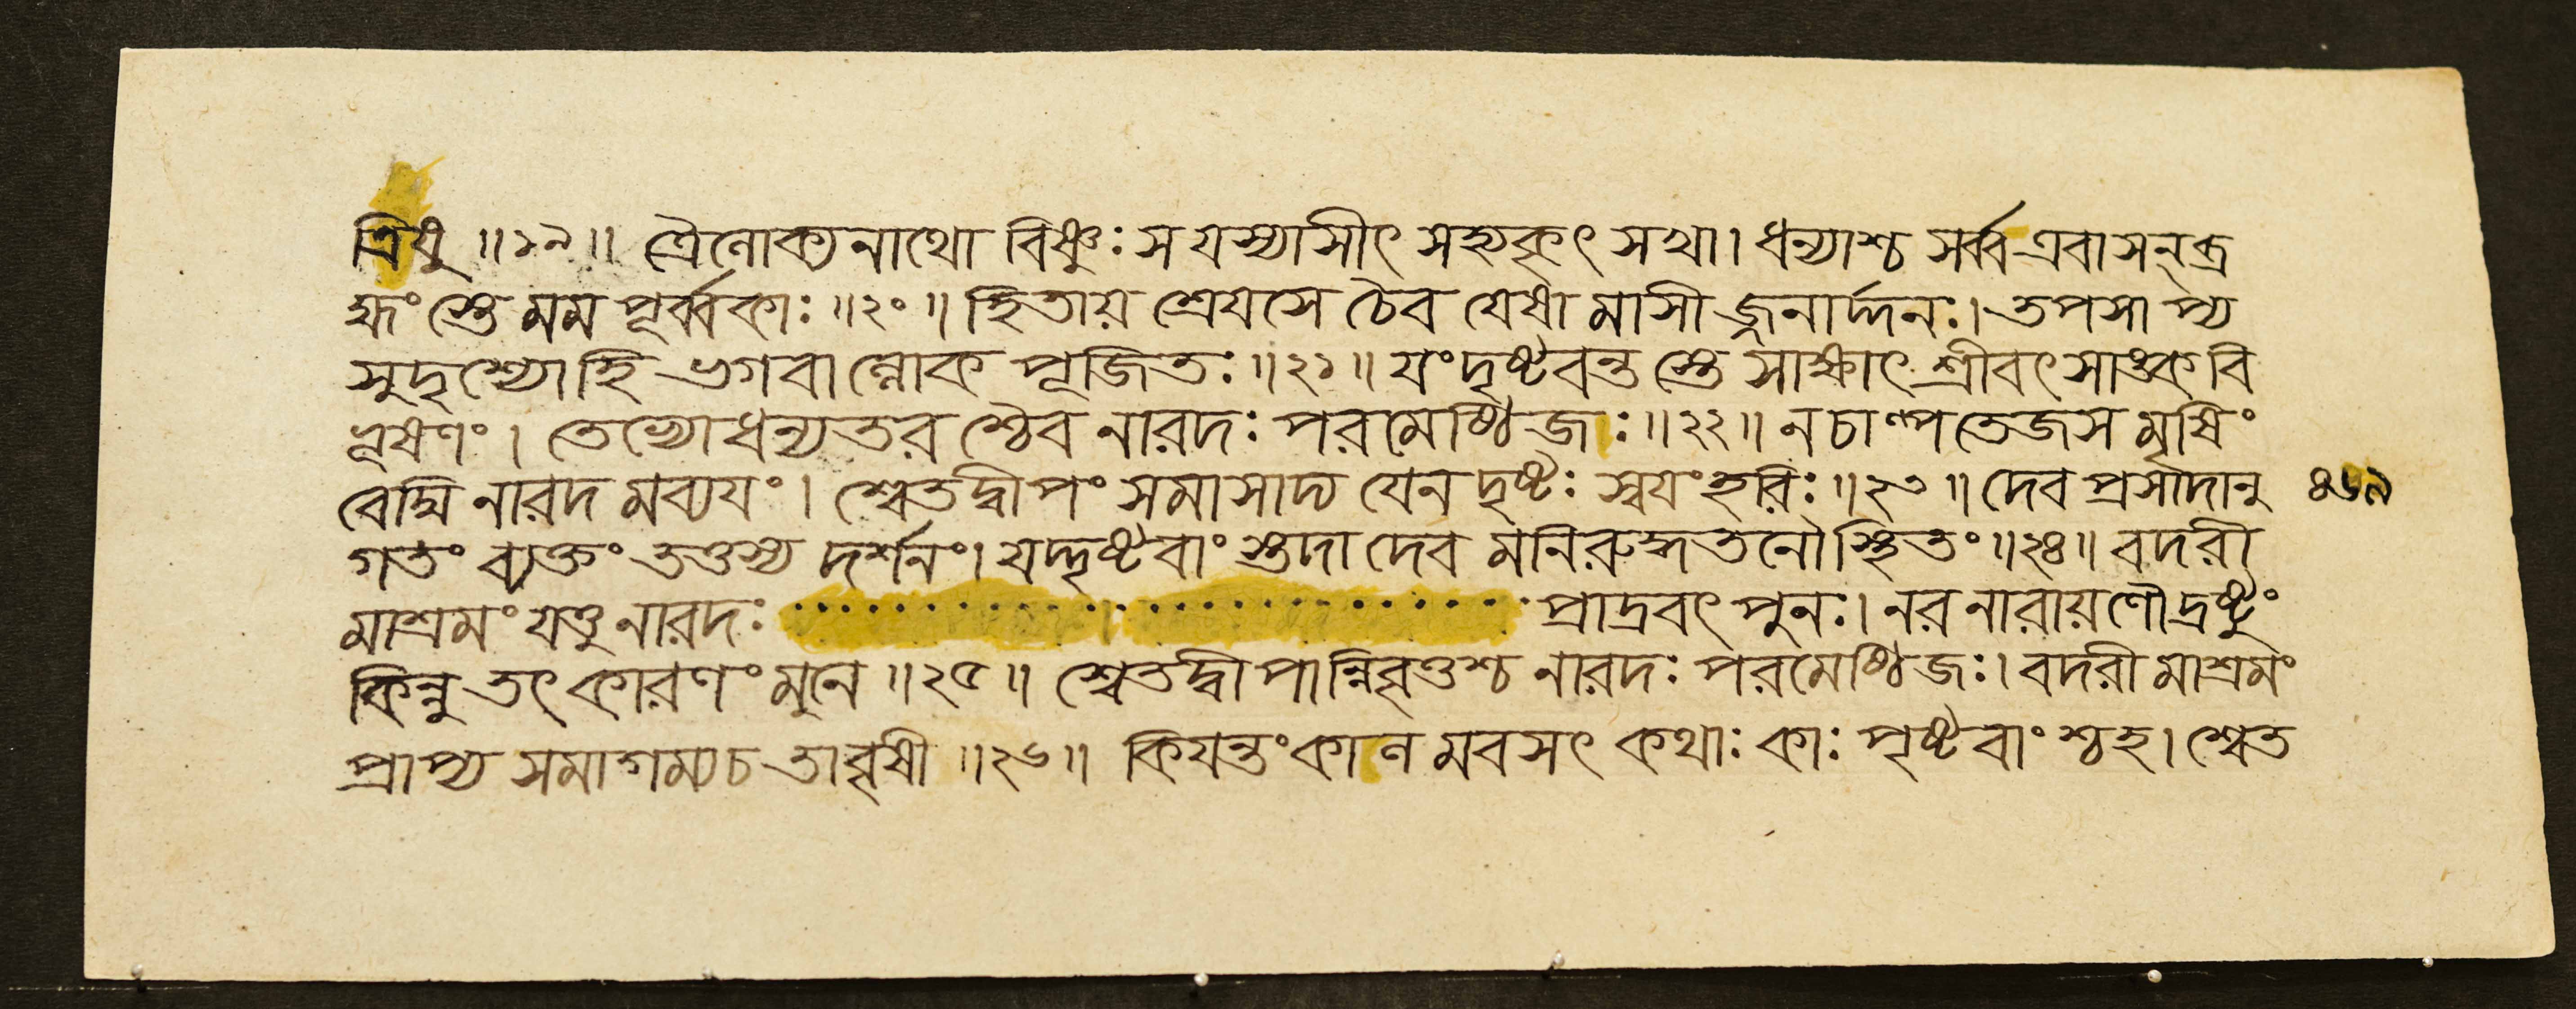 ত্রিষু ॥১৯॥ ত্রৈলোক্যনাথো বিষ্ণুঃ স যস্যাসীৎ সহ্যকৃৎ সখা। ধন্যাশ্চ সর্ব্ব এবাসন্ ব্র
হ্মংস্তে মম পূর্ব্বকাঃ ॥২০॥ হিতায় শ্রেযসে চৈব যেষামাসীজ্জনার্দ্দনঃ। তপসাপ্য
সুদৃশ্যোহি ভগবাল্লোকপূজিতঃ ॥২১॥ যংদৃষ্টবন্তস্তে সাক্ষাৎ শ্রীবৎসাঙ্কবি
ভূষণং। তেভ্যোধন্যতরশ্চৈব নারদঃ পরমেষ্ঠিজঃ ॥২২॥ নচাল্পতেজসমৃষিং
বেদ্মি নারদমব্যযং। শ্বেতদ্বীপং সমাসাদ্য যেন দৃষ্টঃ স্বযংহরিঃ ॥২৩॥ দেবপ্রসাদানু ৪৬৯
গতং ব্যক্তং তত্তস্য দর্শনং। যদ্দৃষ্টবাংস্তদা দেবমনিরুদ্ধতনৌস্থিতং ॥২৪॥ বদরী
মাশ্রমং যত্তুনারদঃ ···························· প্রাদ্রবৎ পুনঃ। নরনারায়ণৌদ্রষ্টুং
কিন্নু তৎ কারণং মুনে ॥২৫॥ শ্বেতদ্বীপান্নিবৃত্তশ্চ নারদঃ পরমেষ্ঠিজঃ। বদরীমাশ্রমং
প্রাপ্য সমাগম্যচ তাবৃষী ॥২৬॥ কিযন্তংকালমবসৎ কথাঃ কাঃ পৃষ্টবাংশ্চহ। শ্বেত